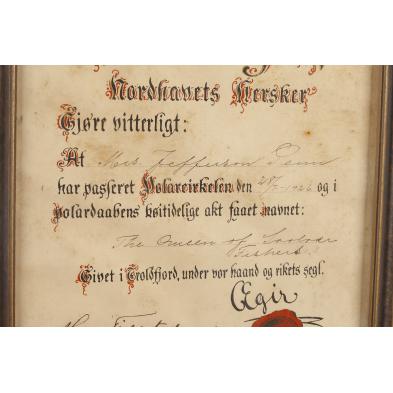 Nordhavets Hersker
Gjøre vitterligt:
At Mrs. Jefferson Penn
har passeret Polarcirkelen den 28/7-1926 og i
polardaabens høitidelige akt faaet navnet:
The Queen of
Fishers
Givet i Troldfjord, under vor haand og rikets segl.
Ægir